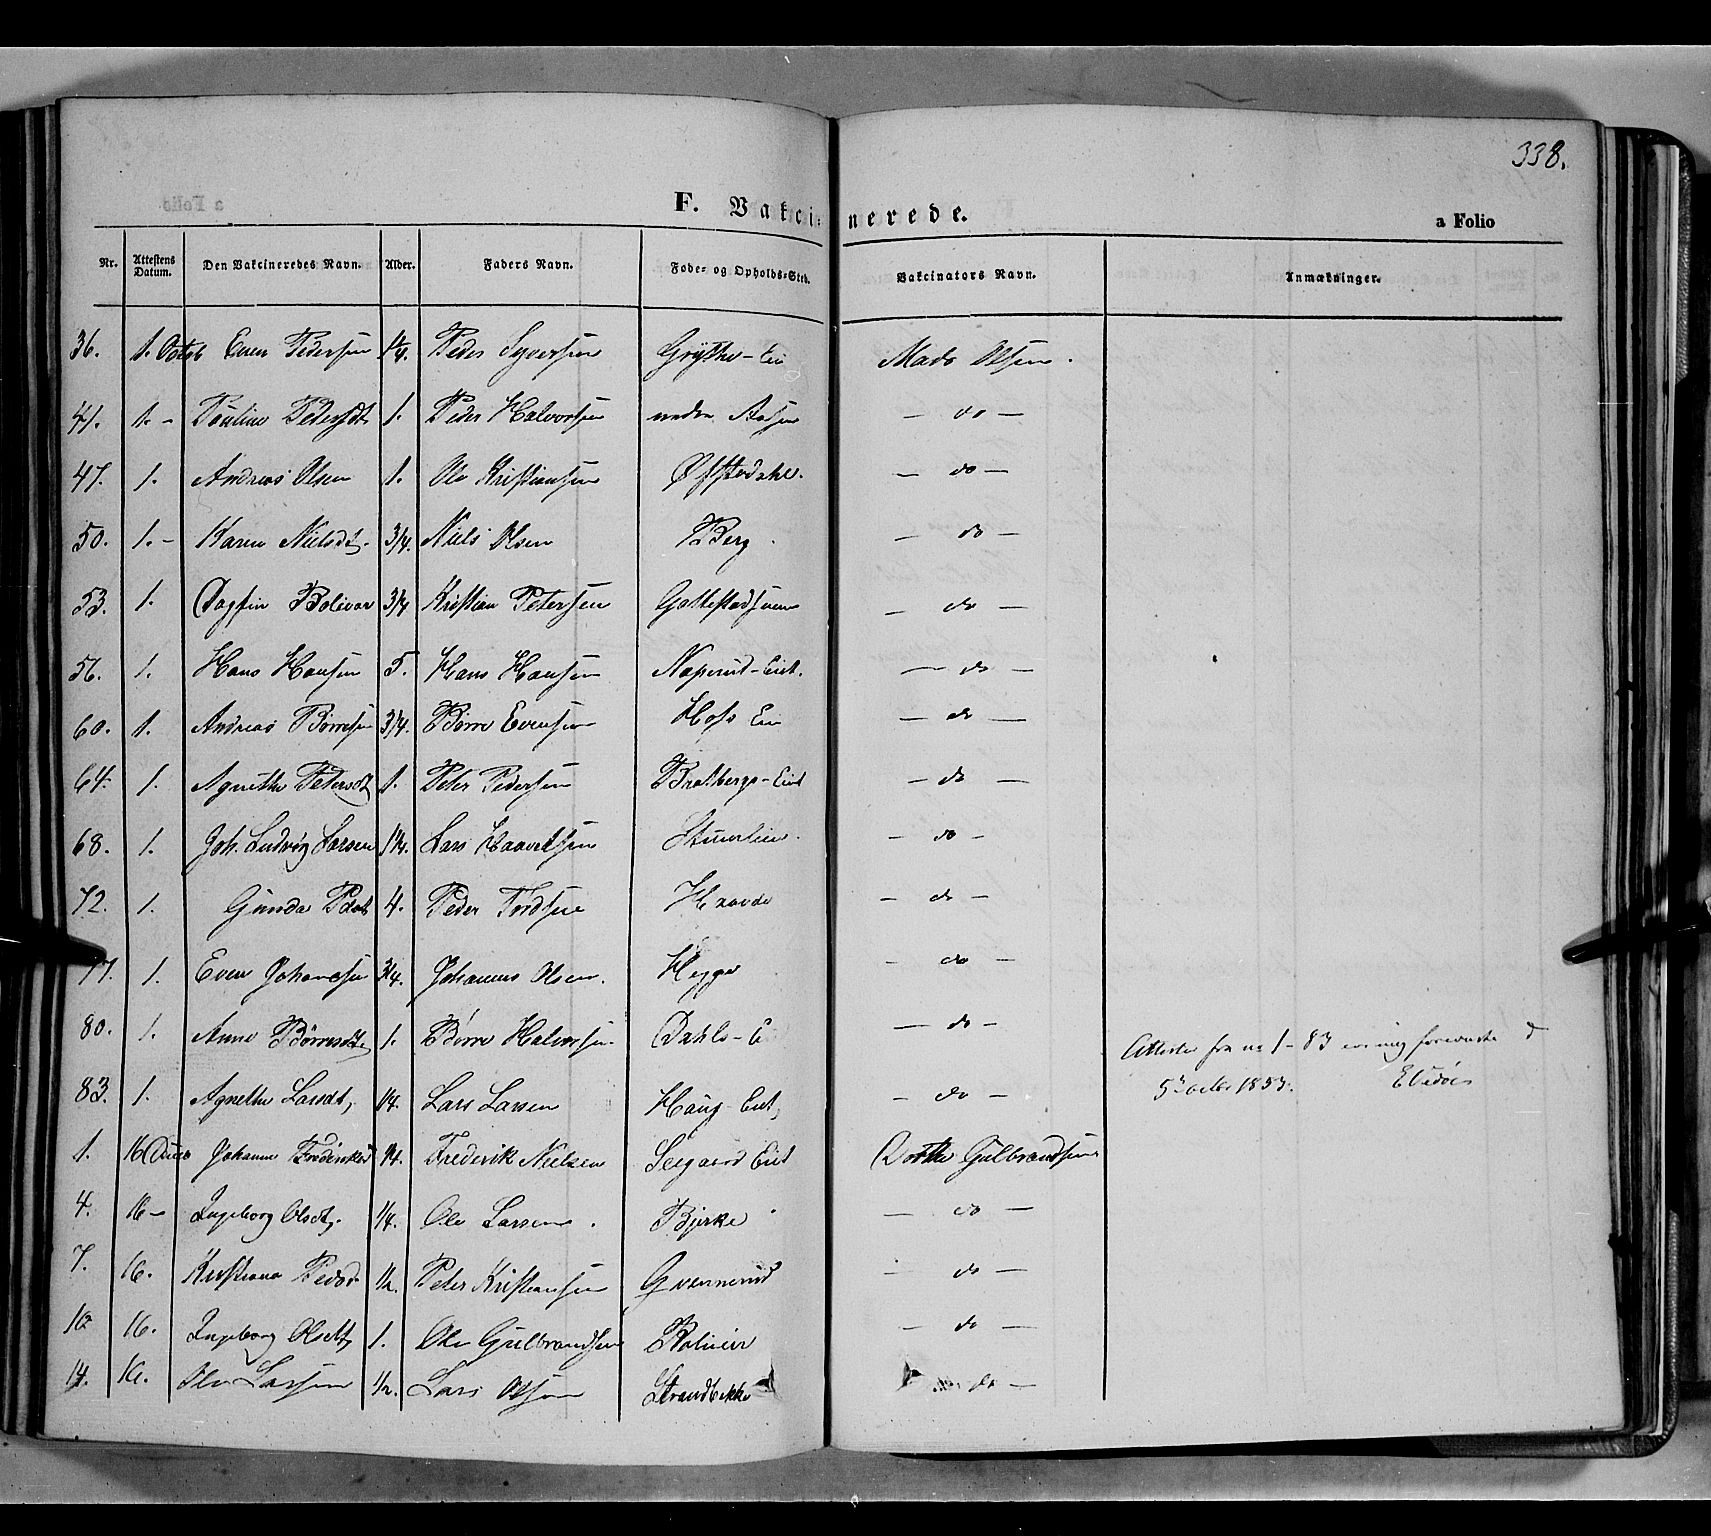 338.
F. Vakcinerede.
a Folio
Nr. Attestens Datum. Den Vakcineredes Navn. Alder. Faders Navn. Føde- og Opholds-Sted. Vakcinators Navn. Anmærkninger.
36. 1. Octob Even Pedersen 1/4. Peder Syversen Grythe-Ei Mads Olsen.
41. 1. - Pouline Pedersdt 1. Peder Halvorsen nedre Aasen - do -
47. 1. Andreas Olsen 1. Ole Kristiansen Øfstedahl. - do -
50. 1. - Karen Nielsdt. 3/4. Niels Olsen Berg. - do -
53. 1. Dagfin Bolivar 3/4 Kristian Petersen - do -
56. 1. Hans Hansen 5. Hans Hansen Naperud-Eiet. - do -
60. 1. Andreas Børresen 3/4. Børre Evensen Hofs Eie - do -
64. 1. Agnethe Petersdt 1. Peter Pedersen Bratbergs-Eiet - do -
68. 1. Joh. Ludvig Larsen 1/4. Lars - do -
72. 1. Gunda Pdat 4. Peder Tordsen - do -
77. 1. Even Johanesen 3/4. Johannes Olsen. Hegge - do -
80. 1. Anne Børresdt 1. Børre Halvorsen Dahls-E - do -
Attester fra no 1-83 ere mig foreviste d
83. 1. Agnethe Larsdt, 1/4. Lars Larsen Haug-Eiet, - do -
5 octbr 1853.
1. 16 Johanne Frederiksd 1/4. Frederik Nielsen Seegaard Eiet Dorthe Gulbrandsen
4. 16 - Ingeborg Olsdt. 1/4. Ole Larsen. Bjerke - do -
7. 16. Kristiane Pedsd. 1/2. Peter Kristiansen - do -
10 16. Ingeborg Olsdt, 1. Ole Gulbrandsen - do -
14. 16. Ole Larsen 1/2. Lars Olsen Strandbekke - do -